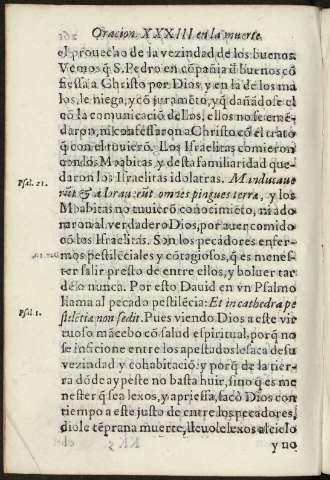 Oracion. XXXIII en la muerte.
el prouecho de la vezindad de los buenos.
Vemos q̃ S. Pedro en cõpañia d̃ buenos cõ
fiessa a Christo por Dios, y en la de los ma
los, le niega, y cõ juramẽto, y q̃ dañadose el
cõ la comunicaciõ dellos, ellos no se emẽ-
daron, ni confessaron a Christo cõ el trato
que con el tuuierõ. Los Israelitas comieron
con los Moabitas y desta familiaridad que-
daron los Israelitas idolatras. Manducaue
Psal. 21.
rũt & adorauerũt omnes pingues terrę, y los
Moabitas no tuuierõ conocimiẽto, ni ado
raron al verdadero Dios, por auer comido
cõ los Israelitas. Son los pecadores enfer-
mos pestilẽciales y cõtagiosos, q̃ es menes-
ter salir presto de entre ellos, y boluer tar
de, o nunca. Por esto Dauid en vn Psalmo
llama al pecado pestilẽcia: Et in cathedra pe
Psal. 1.
stilẽtiæ non sedit. Pues viendo Dios a este vir
tuoso mãcebo cõ salud espiritual, porq̃ no
se inficione entre los apestados le saca de su
vezindad y cohabitaciõ: y porq̃ de la tier-
ra dõde ay peste no basta huir, sino q̃ es me
nester q̃ sea lexos, y apriessa, sacò Dios con
tiempo a este justo de entre los pecadores,
diole tẽprana muerte, lleuole lexos al cielo
y no